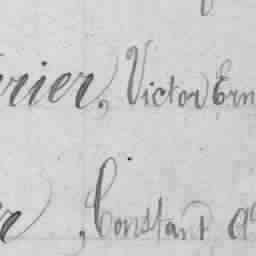 rier, Victor Ern
, Constant